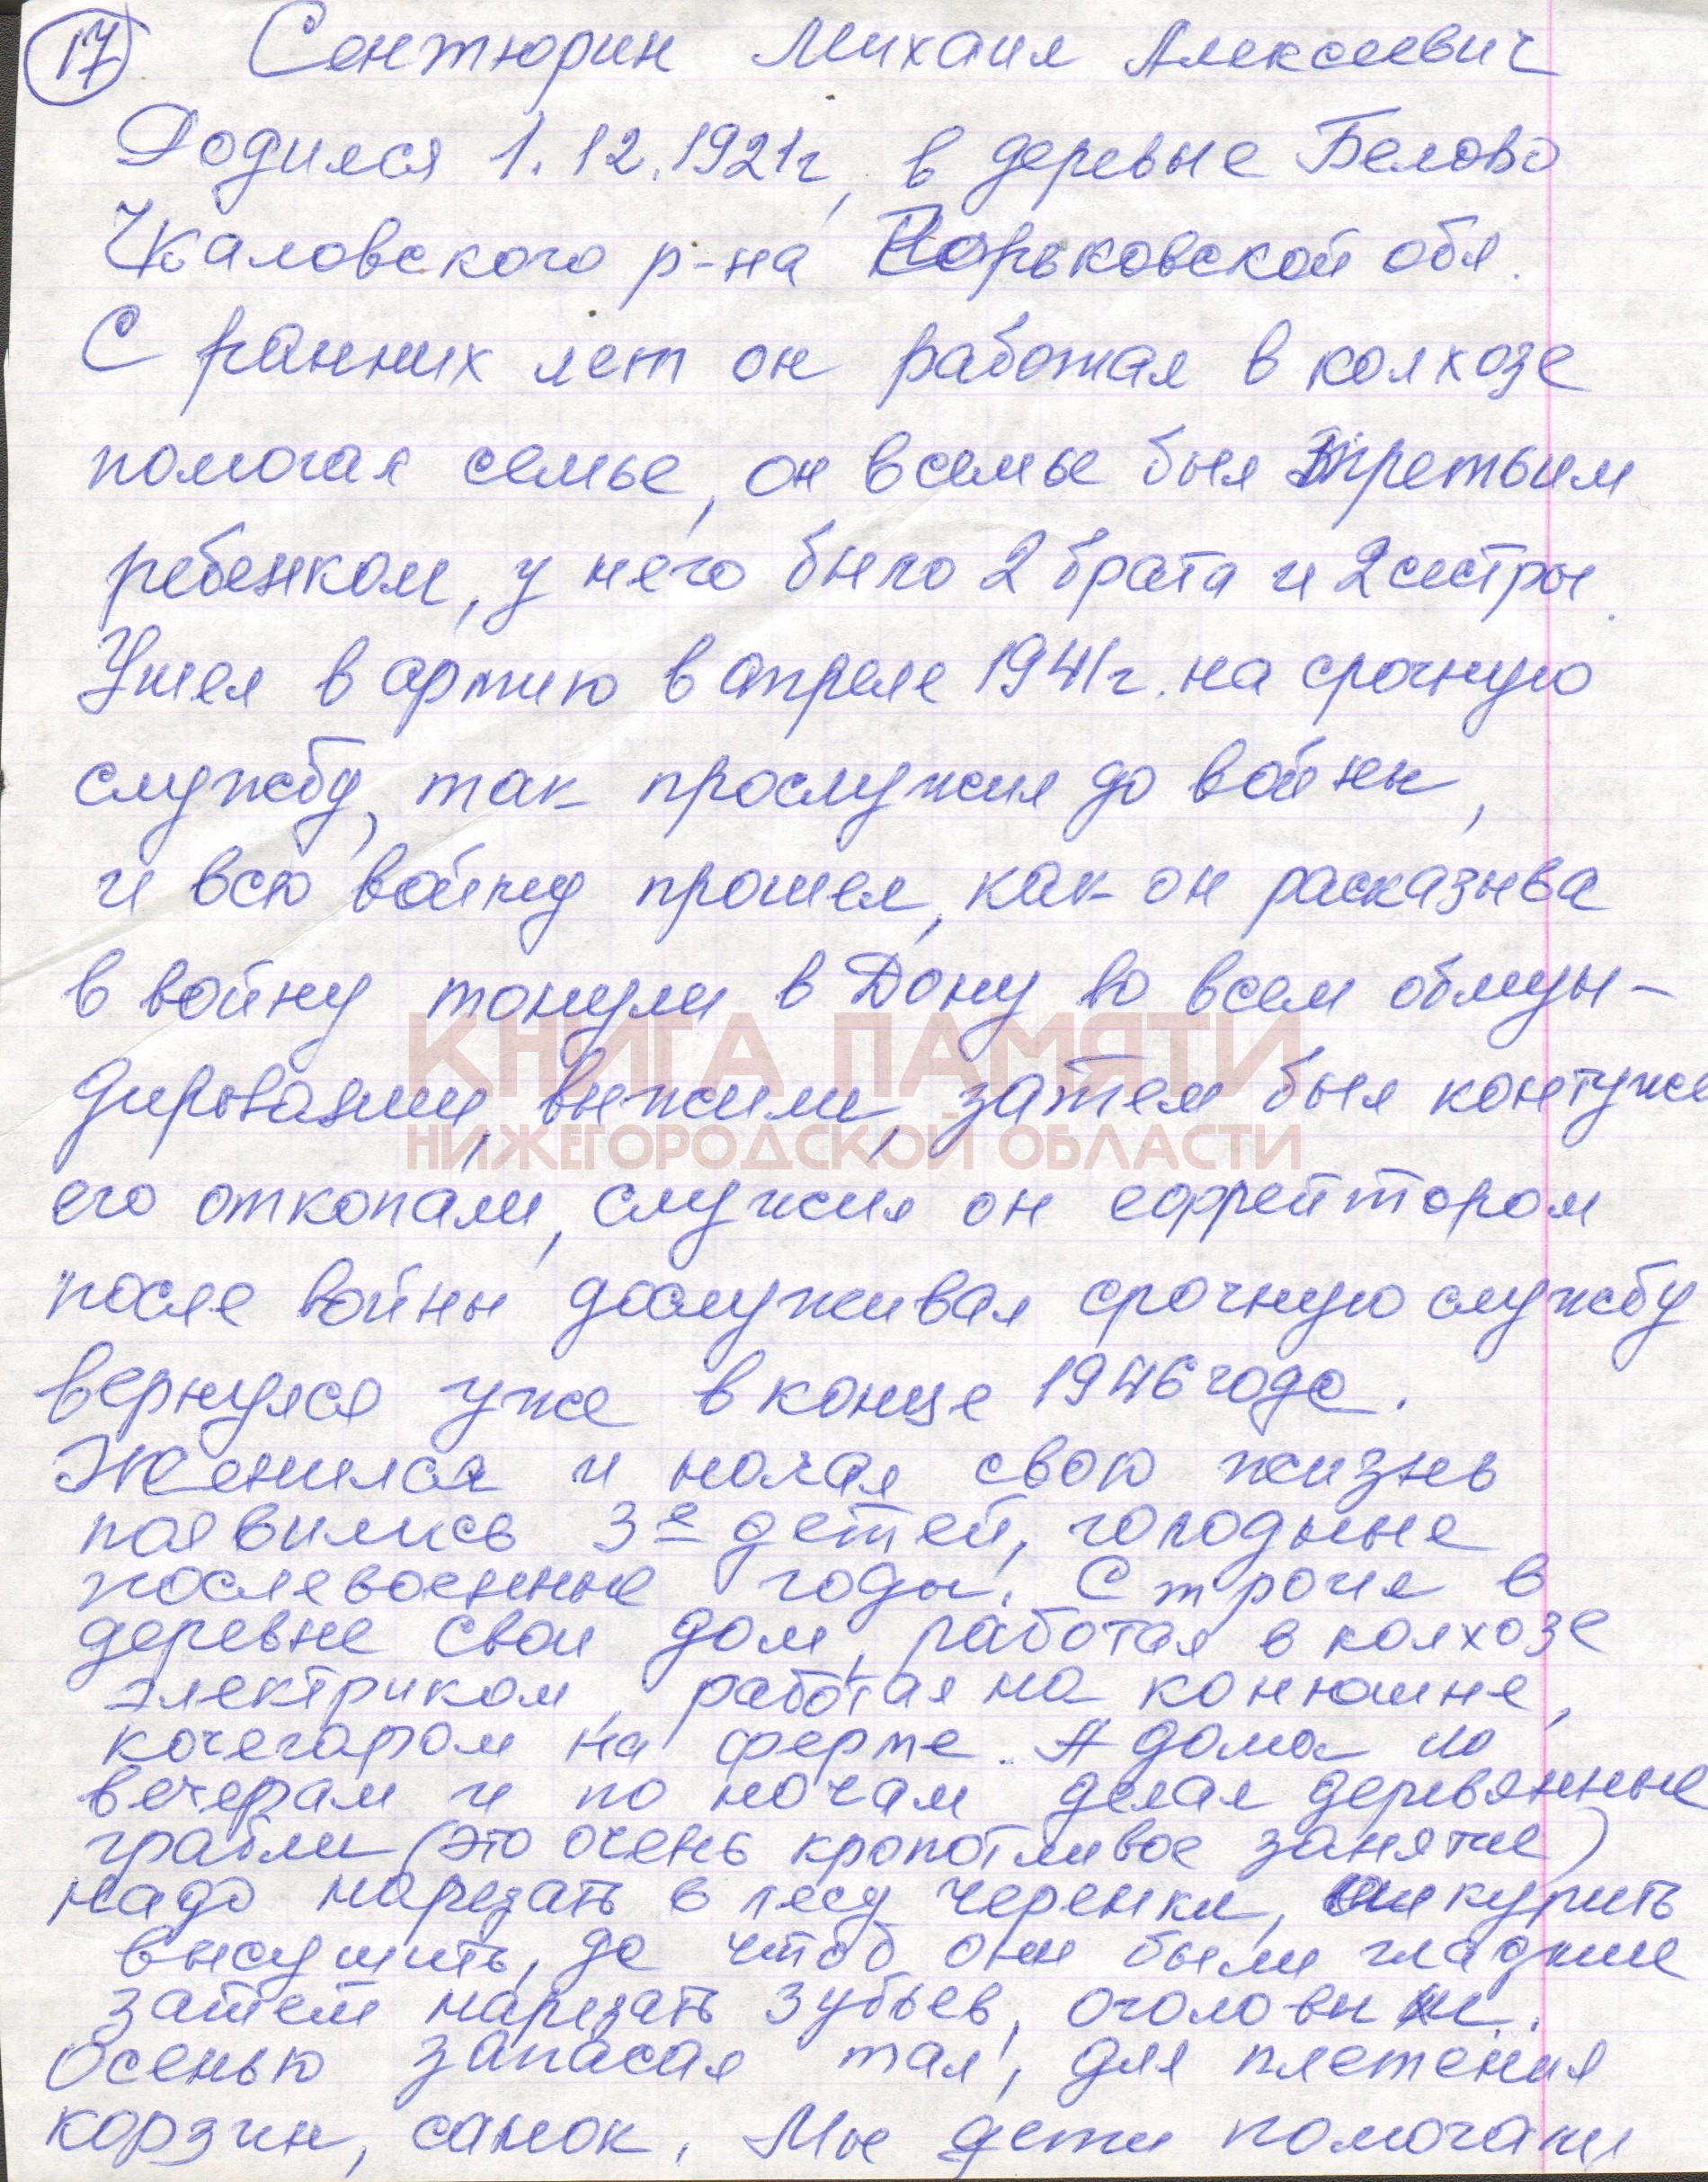 17 Сентюрин Михаил Алексеевич
Родился 1.12.1921г, в деревне Белово
Чкаловского р-на Горьковской обл.
С ранних лет он работал в колхозе
помогая семье, он в семье был третьим
ребенком, у него было 2 брата и 2 сестры.
Ушел в армию в апреле 1941г. на срочную
службу, так прослужил до войны,
и всю войну прошел, как он расказыва
в войну тонули в Дону во всем обмун-
дировании, выжили, затем был контуже
КНИГА ПАМЯТИ
НИЖЕГОРОДСКОЙ ОБЛАСТИ
его откопали, служил он ефрейтором
после войны дослуживал срочную службу
вернулся уже в конце 1946 года.
Женился и начал свою жизнь
появились 3е детей, голодные
послевоенные годы. Строил в
деревне свой дом, работал в колхозе
электриком, работал на конюшне,
кочегаром на ферме. А дома по
вечерам и по ночам делал деревянные
грабли (это очень кропотливое занятие)
надо нарезать в лесу черенки, шкурить
высушить, да чтоб они были гладкие
затем нарезать зубьев,
Осенью запасал тал, для плетения
корзин, санок. Мы дети помогали